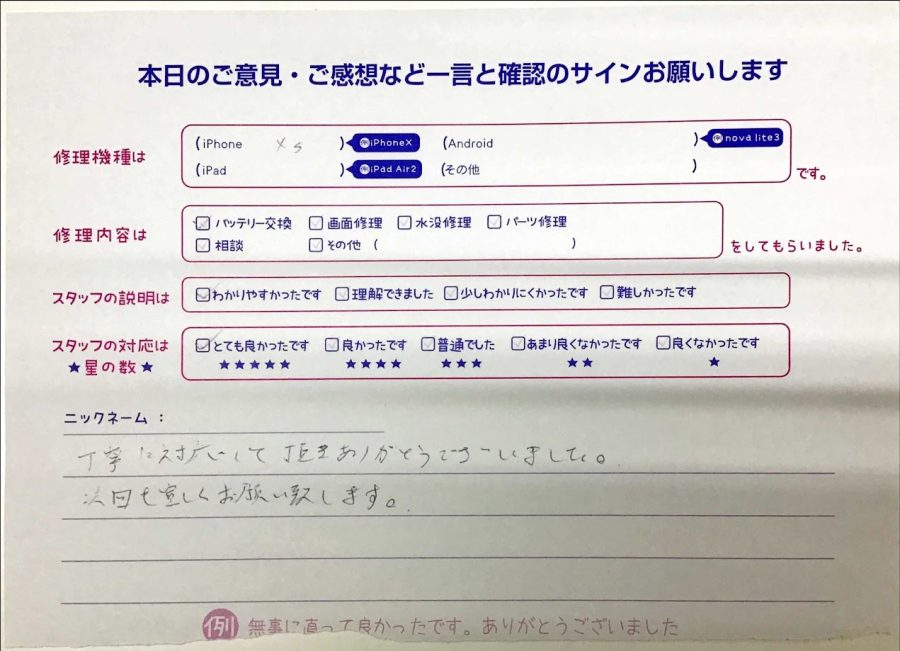 本日のご意見・ご感想など一言と確認のサインお願いします
修理機種は (iPhone Xs ) 例iPhoneX (Android ) 例nova lite3
(iPad ) 例iPad Air2 (その他 ) です。
修理内容は バッテリー交換 画面修理 水没修理 パーツ修理
相談 その他 ( ) をしてもらいました。
スタッフの説明は わかりやすかったです 理解できました 少しわかりにくかったです 難しかったです
スタッフの対応は とても良かったです 良かったです 普通でした あまり良くなかったです 良くなかったです
★星の数★ ★★★★★ ★★★★ ★★★ ★★ ★
ニックネーム:
丁寧に対応して頂きありがとうございました。
次回も宜しくお願い致します。
例 無事に直って良かったです。ありがとうございました